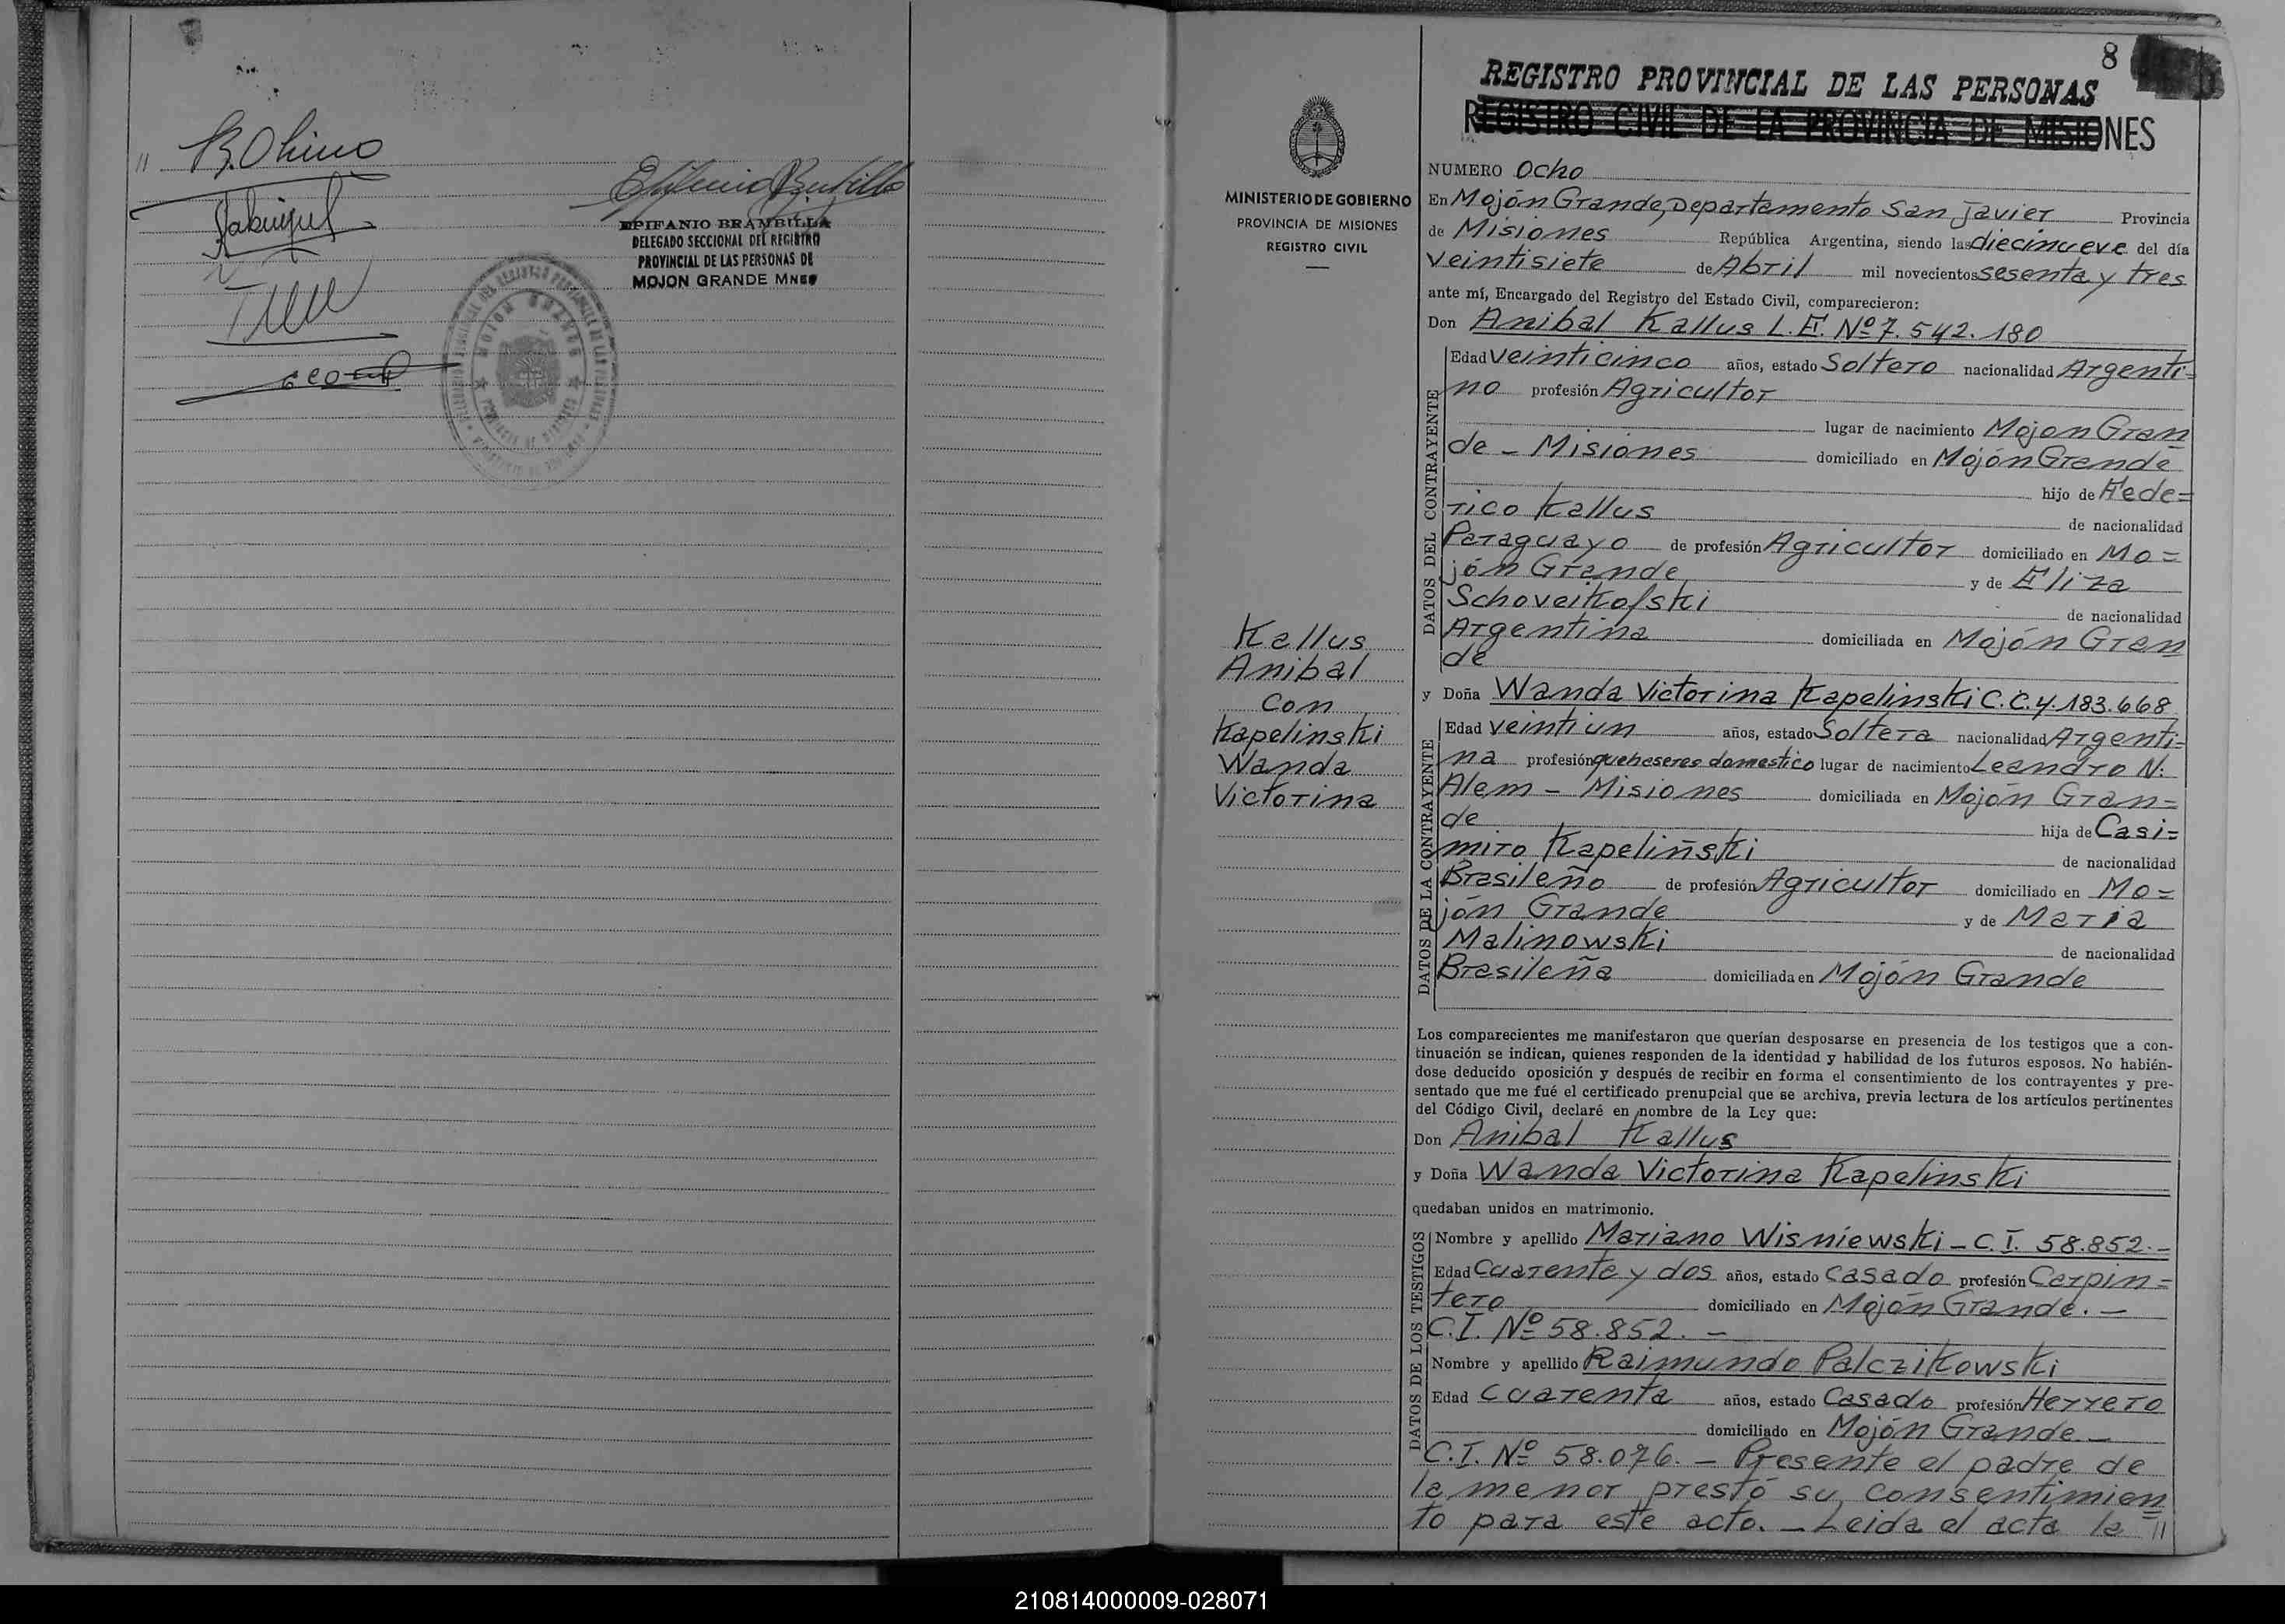 EPIFANIO BRAMBILLA
DELEGADO SECCIONAL DEL REGISTRO
PROVINCIAL DE LAS PERSONAS DE
MOJON GRANDE MNES
8
REGISTRO PROVINCIAL DE LAS PERSONAS
REGISTRO CIVIL DE LA PROVINCIA DE MISIONES
MINISTERIO DE GOBIERNO
PROVINCIA DE MISIONES
REGISTRO CIVIL
Kallus
Anibal
Con
Kapelinski
Wanda
Victorina
NUMERO Ocho
En Mojón Grande, Departamento San Javier Provincia
de Misiones República Argentina, siendo las diecinueve del día
veintisiete de Abril mil novecientos sesenta y tres
ante mí, Encargado del Registro del Estado Civil, comparecieron:
Don Anibal Kallus L.E. Nº 7.542.180
DATOS DEL CONTRAYENTE
Edad veinticinco años, estado Soltero nacionalidad Argenti=
no profesión Agricultor
lugar de nacimiento Mojon Gran
de - Misiones domiciliado en Mojón Grande
hijo de Fede=
rico Kallus
de nacionalidad
Paraguayo de profesión Agricultor domiciliado en Mo=
jón Grande y de Eliza
Schoveikofski
de nacionalidad
Argentina domiciliada en Mojón Gran
de
y Doña Wanda Victorina Kapelinski C.C.4.183.668
DATOS DE LA CONTRAYENTE
Edad veintiun años, estado Soltera nacionalidad Argenti=
na profesión quehaseres domestico lugar de nacimiento Leandro N.
Alem - Misiones domiciliada en Mojón Gran=
de hija de Casi=
miro Kapeliñski
de nacionalidad
Brasileño de profesión Agricultor domiciliado en Mo=
jón Grande y de Maria
Malinowski
de nacionalidad
Brasileña domiciliada en Mojón Grande
Los comparecientes me manifestaron que querían desposarse en presencia de los testigos que a con-
tinuación se indican, quienes responden de la identidad y habilidad de los futuros esposos. No habién-
dose deducido oposición y después de recibir en forma el consentimiento de los contrayentes y pre-
sentado que me fué el certificado prenupcial que se archiva, previa lectura de los artículos pertinentes
del Código Civil, declaré en nombre de la Ley que:
Don Anibal Kallus
y Doña Wanda Victorina Kapelinski
quedaban unidos en matrimonio.
DATOS DE LOS TESTIGOS
Nombre y apellido Mariano Wisniewski - C.I. 58.852.-
Edad Cuarenta y dos años, estado Casado profesión Carpin=
tero domiciliado en Mojón Grande.-
C.I. Nº 58.852.-
Nombre y apellido Raimundo Palczikowski
Edad Cuarenta años, estado Casado profesión Herrero
domiciliado en Mojón Grande.-
C.I. Nº 58.076.- Presente el padre de
la menor prestó su consentimien
to para este acto.- Leida el acta la //
210814000009-028071